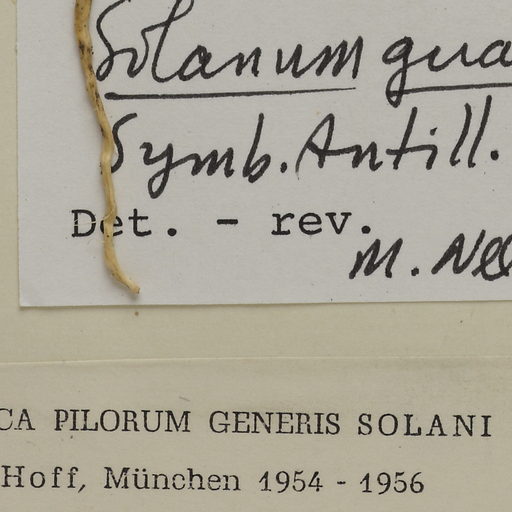 Solanum gua
Symb. Antill.
Det. - rev.
M. Nee
CA PILORUM GENERIS SOLANI
Hoff, München 1954 - 1956